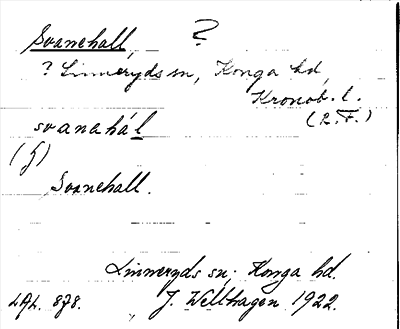 Svanehall, ?
? Linneryds sn, Konga hd,
Kronob. l.
(2. F.)
svanahál
(f)
Svanehall.
Linneryds sn; Konga hd.
LAL. 878. J. Wellhagen 1922.